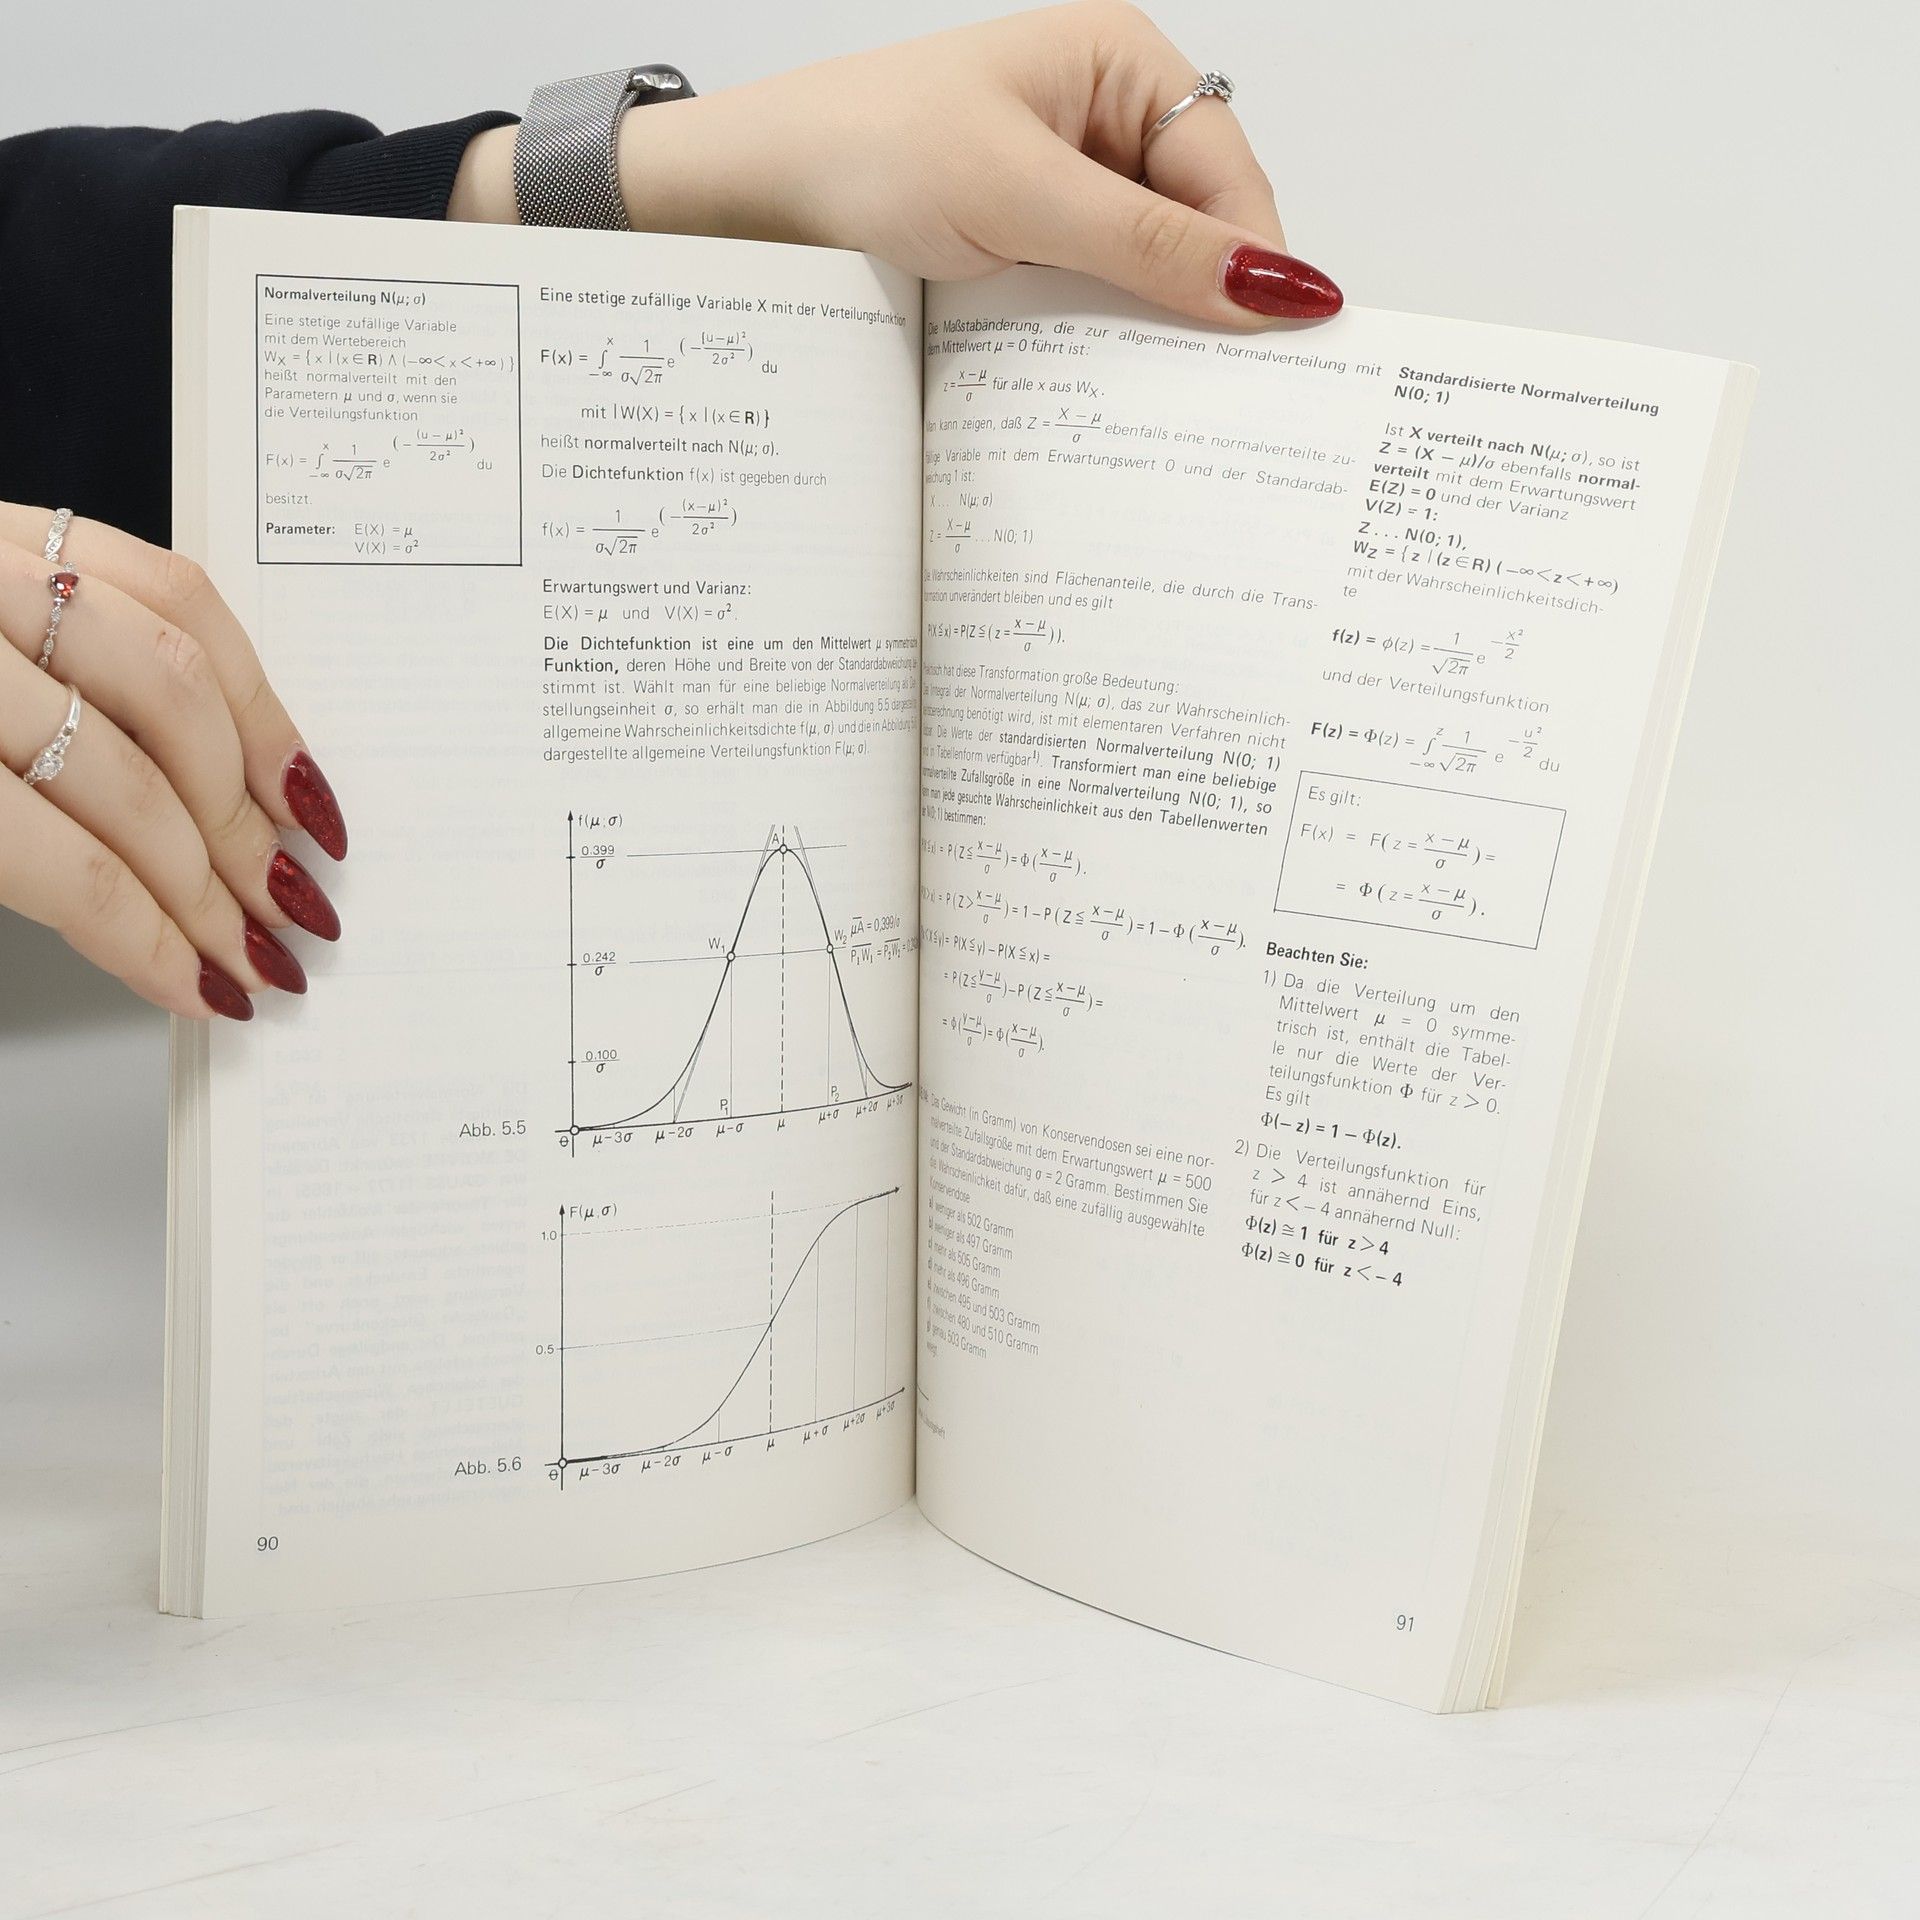 Normalverteilung N(μ; σ)
Eine stetige zufällige Variable
mit dem Wertebereich
W_X = { x | (x ∈ R) ∧ (−∞ < x < +∞) }
heißt normalverteilt mit den
Parametern μ und σ, wenn sie
die Verteilungsfunktion
F(x) = ∫_{−∞}^{x} 1/(σ√2π) e^(−(u−μ)²/2σ²) du
besitzt.
Parameter: E(X) = μ
V(X) = σ²
Eine stetige zufällige Variable X mit der Verteilungsfunktion
F(x) = ∫_{−∞}^{x} 1/(σ√2π) e^(−(u−μ)²/2σ²) du
mit W(X) = { x | (x ∈ R) }
heißt normalverteilt nach N(μ; σ).
Die Dichtefunktion f(x) ist gegeben durch
f(x) = 1/(σ√2π) e^(−(x−μ)²/2σ²)
Erwartungswert und Varianz:
E(X) = μ und V(X) = σ².
Die Dichtefunktion ist eine um den Mittelwert μ symmetrische
Funktion, deren Höhe und Breite von der Standardabweichung
stimmt ist. Wählt man für eine beliebige Normalverteilung als
stellungseinheit σ, so erhält man die in Abbildung 5.5
allgemeine Wahrscheinlichkeitsdichte f(μ, σ) und die in Abbildung
dargestellte allgemeine Verteilungsfunktion F(μ; σ).
f(μ; σ)
0.399/σ
A
W₁
W₂
μA = 0,399/σ
0.242/σ
0.100/σ
P₁
P₂
0 μ−3σ μ−2σ μ−σ μ μ+σ μ+2σ μ+3σ
Abb. 5.5
F(μ, σ)
1.0
0.5
0 μ−3σ μ−2σ μ−σ μ μ+σ μ+2σ μ+3σ
Abb. 5.6
90
Die Maßstabänderung, die zur allgemeinen Normalverteilung mit
dem Mittelwert μ = 0 führt ist:
z = (x−μ)/σ für alle x aus W_X.
Man kann zeigen, daß Z = (X−μ)/σ ebenfalls eine normalverteilte zu-
fällige Variable mit dem Erwartungswert 0 und der Standardab-
weichung 1 ist:
X ... N(μ; σ)
z = (X−μ)/σ ... N(0; 1)
Die Wahrscheinlichkeiten sind Flächenanteile, die durch die Trans-
formation unverändert bleiben und es gilt
P(X ≦ x) = P(Z ≦ (z = (x−μ)/σ)).
Praktisch hat diese Transformation große Bedeutung:
Das Integral der Normalverteilung N(μ; σ), das zur Wahrscheinlich-
keitsberechnung benötigt wird, ist mit elementaren Verfahren nicht
Die Werte der standardisierten Normalverteilung N(0; 1)
sind in Tabellenform verfügbar¹). Transformiert man eine beliebige
normalverteilte Zufallsgröße in eine Normalverteilung N(0; 1), so
kann man jede gesuchte Wahrscheinlichkeit aus den Tabellenwerten
der N(0; 1) bestimmen:
P(X ≦ x) = P(Z ≦ (x−μ)/σ) = Φ((x−μ)/σ).
P(X > x) = P(Z > (x−μ)/σ) = 1 − P(Z ≦ (x−μ)/σ) = 1 − Φ((x−μ)/σ).
P(x < X ≦ y) = P(X ≦ y) − P(X ≦ x) =
= P(Z ≦ (y−μ)/σ) − P(Z ≦ (x−μ)/σ) =
= Φ((y−μ)/σ) = Φ((x−μ)/σ).
Das Gewicht (in Gramm) von Konservendosen sei eine nor-
malverteilte Zufallsgröße mit dem Erwartungswert μ = 500
und der Standardabweichung σ = 2 Gramm. Bestimmen Sie
die Wahrscheinlichkeit dafür, daß eine zufällig ausgewählte
Konservendose
a) weniger als 502 Gramm
b) weniger als 497 Gramm
c) mehr als 505 Gramm
d) mehr als 496 Gramm
e) zwischen 495 und 503 Gramm
f) zwischen 480 und 510 Gramm
g) genau 503 Gramm
wiegt.
Standardisierte Normalverteilung
N(0; 1)
Ist X verteilt nach N(μ; σ), so ist
Z = (X − μ)/σ ebenfalls normal-
verteilt mit dem Erwartungswert
E(Z) = 0 und der Varianz
V(Z) = 1:
Z ... N(0; 1),
W_Z = { z | (z ∈ R) (−∞ < z < +∞)
mit der Wahrscheinlichkeitsdich-
te
f(z) = φ(z) = 1/√2π e^(−x²/2)
und der Verteilungsfunktion
F(z) = Φ(z) = ∫_{−∞}^{z} 1/√2π e^(−u²/2) du
Es gilt:
F(x) = F( z = (x−μ)/σ ) =
= Φ ( z = (x−μ)/σ ).
Beachten Sie:
1) Da die Verteilung um den
Mittelwert μ = 0 symme-
trisch ist, enthält die Tabel-
le nur die Werte der Ver-
teilungsfunktion Φ für z > 0.
Es gilt
Φ(−z) = 1 − Φ(z).
2) Die Verteilungsfunktion für
z > 4 ist annähernd Eins,
für z < −4 annähernd Null:
Φ(z) ≅ 1 für z > 4
Φ(z) ≅ 0 für z < −4
91